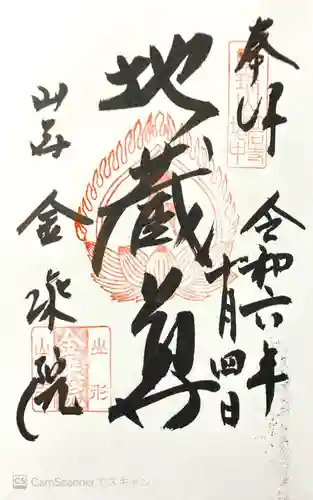 奉拝
令和六年
十月四日
地蔵尊
山形
金泉院
CamScanner でスキャン